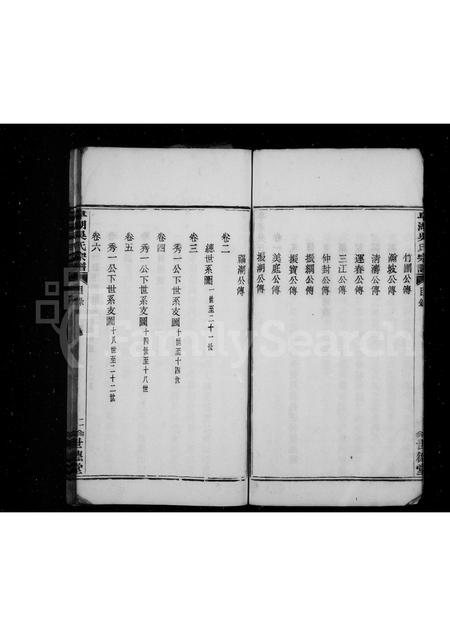 竹園公傳
瀚坡公傳
清濤公傳
運春公傳
三江公傳
仲封公傳
振綱公傳
振寶公傳
美庭公傳
振湖公傳
瀛湖公傳
卷二
總世系圖 一世至二十一世
卷三
秀一公下世系支圖 十世至十四世
卷四
秀一公下世系支圖 十四世至十八世
卷五
秀一公下世系支圖 十八世至二十二世
卷六
湖吳氏宗譜 目錄 二 世德堂
FamilySearch